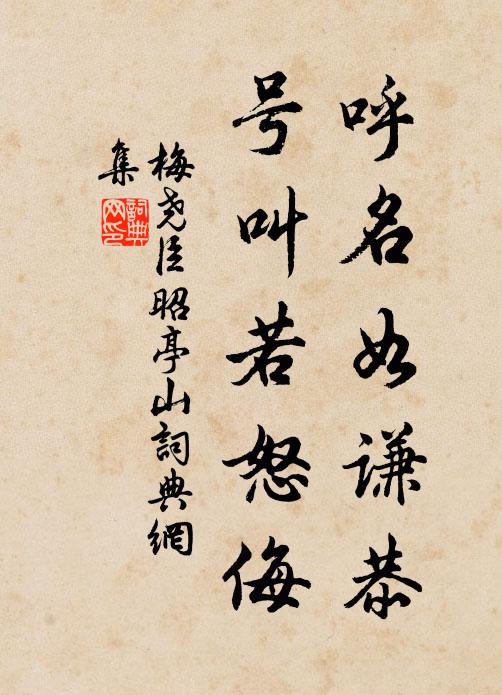 呼名如谦恭
号叫若怒侮
梅尧臣昭亭山詞典網
集
詞典
网印